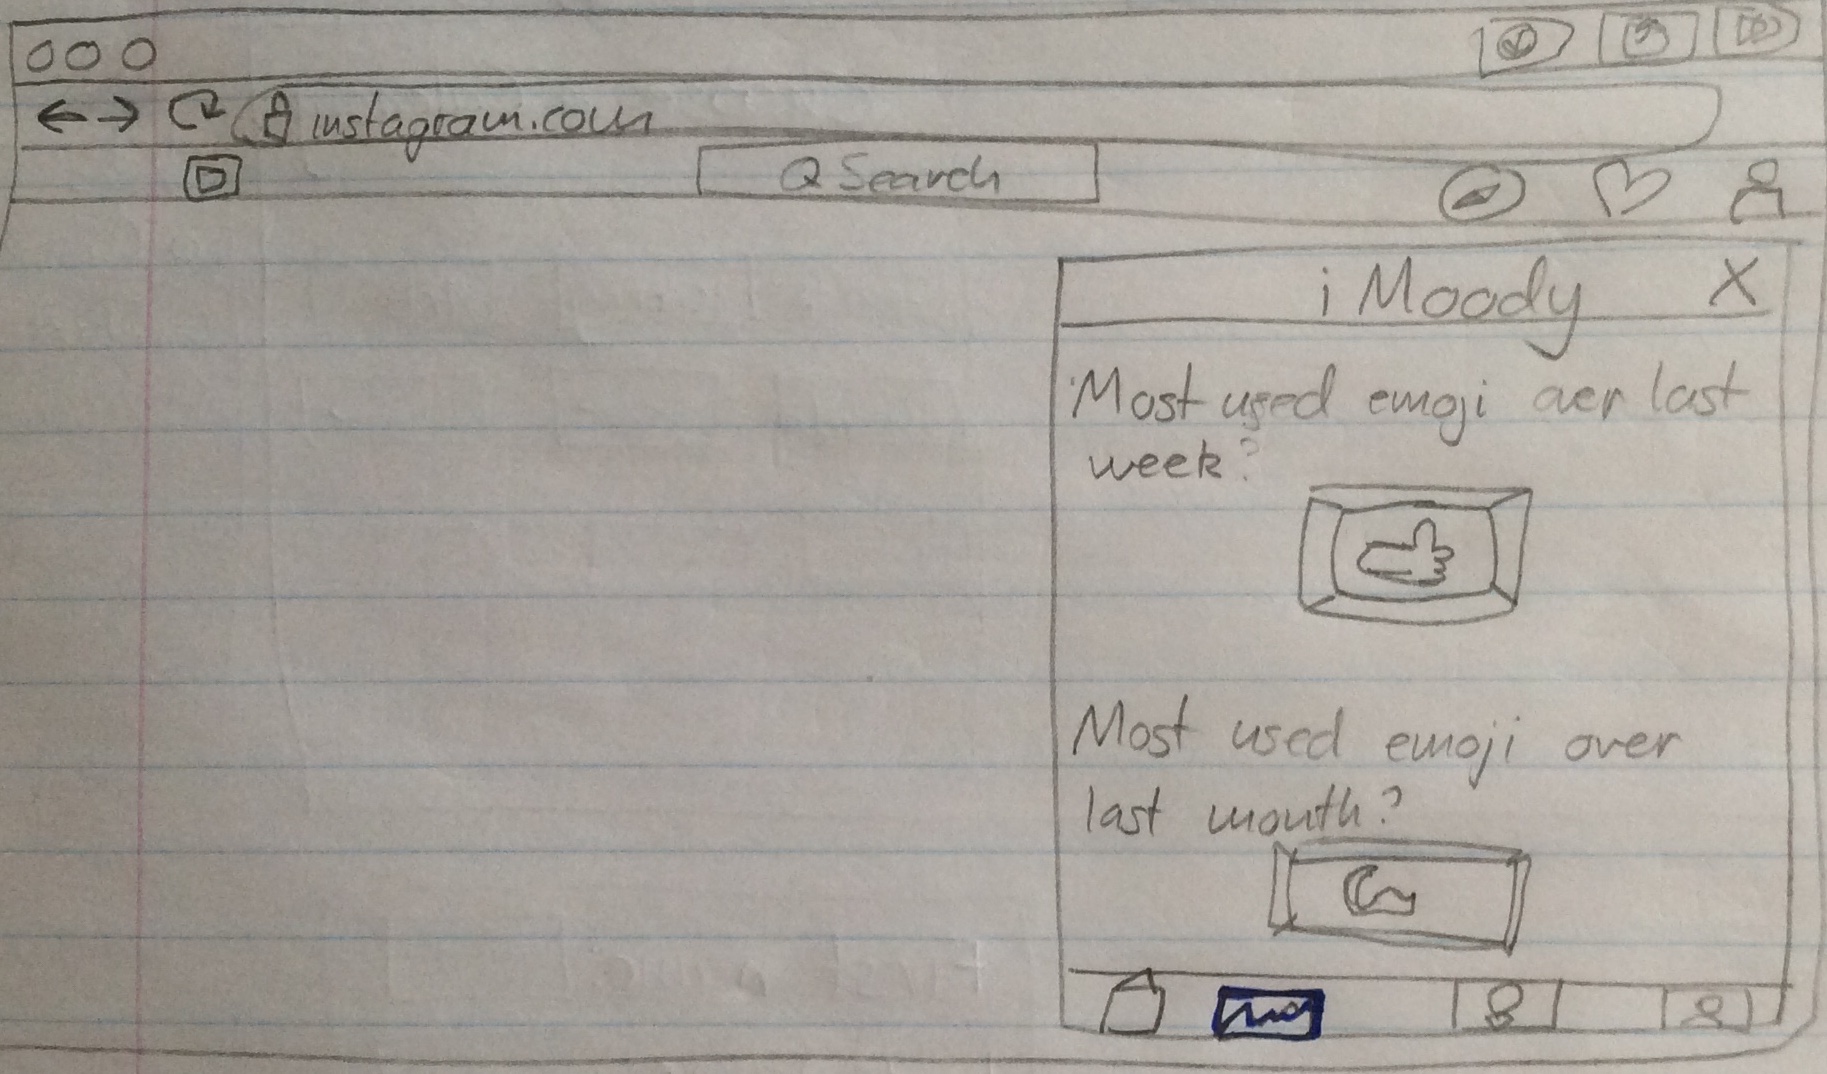 instagram.com
Search
iMoody X
Most used emoji over last
week?
Most used emoji over
last month?